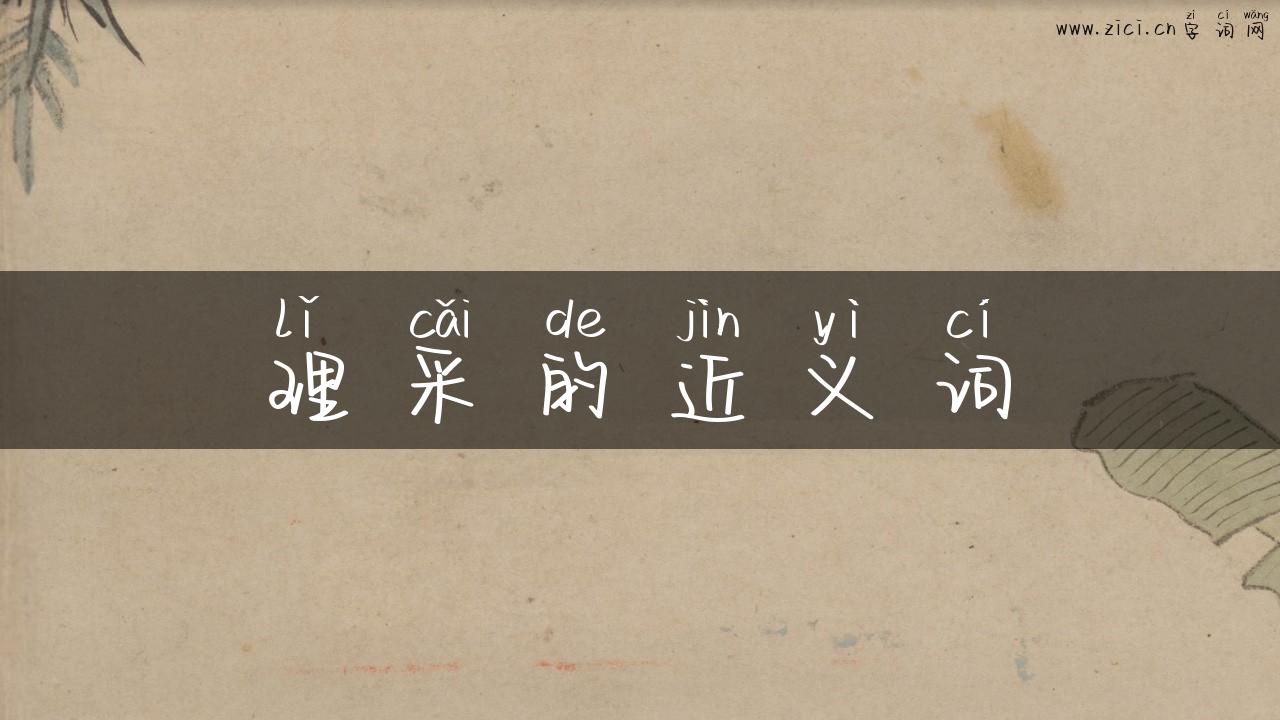 zì cí wǎng
www.zici.cn 字词网
lǐ cǎi de jìn yì cí
理采的近义词